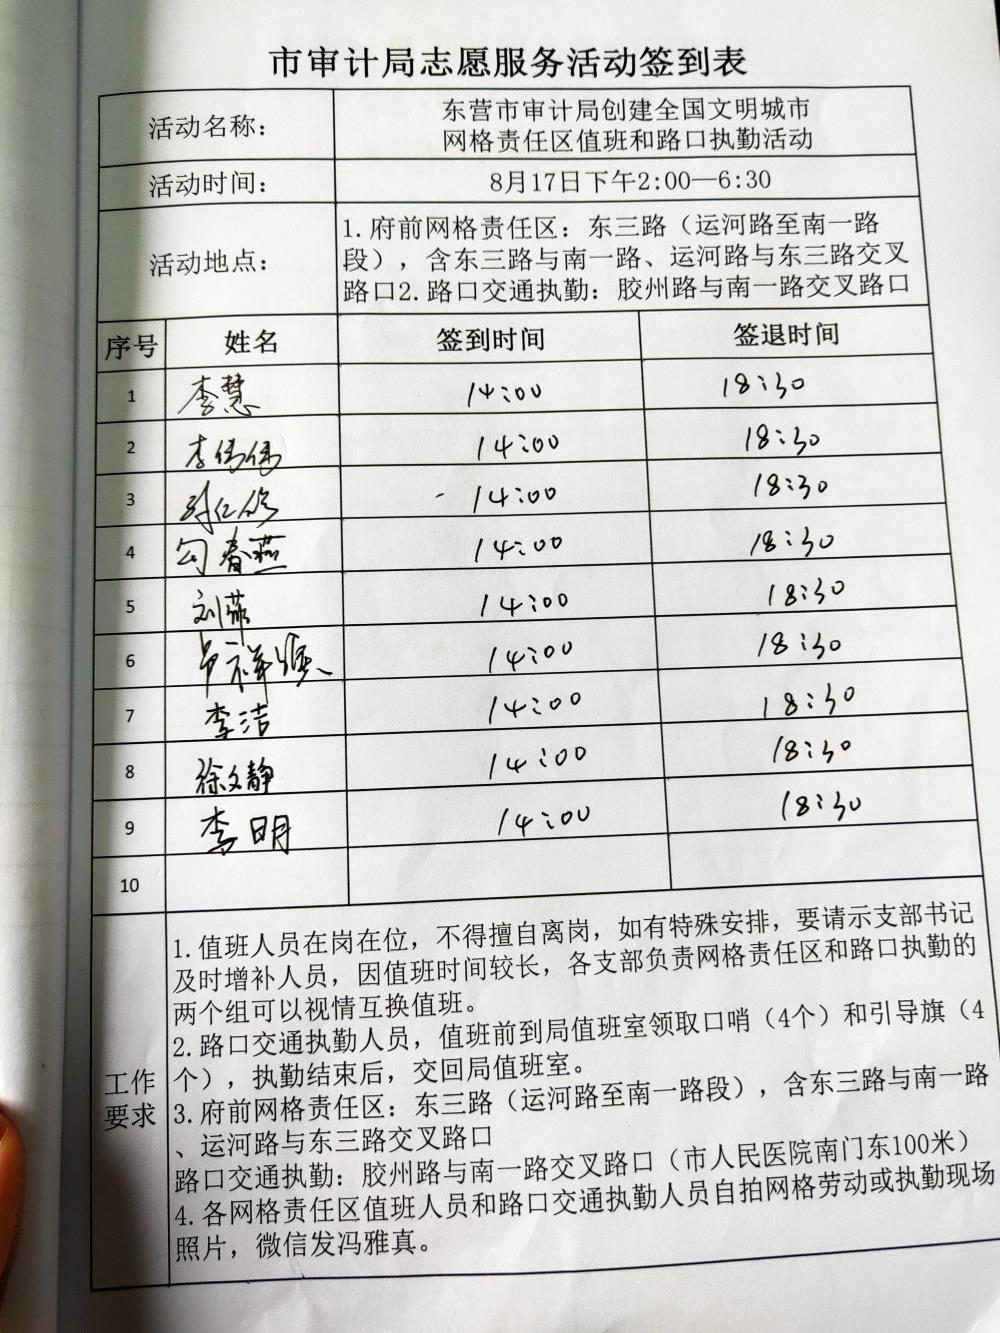 市审计局志愿服务活动签到表
活动名称：
东营市审计局创建全国文明城市
网格责任区值班和路口执勤活动
活动时间：
8月17日下午2:00—6:30
活动地点：
1.府前网格责任区：东三路（运河路至南一路
段），含东三路与南一路、运河路与东三路交叉
路口2.路口交通执勤：胶州路与南一路交叉路口
序号 姓名 签到时间 签退时间
1 李慧 14:00 18:30
2 李伟伟 14:00 18:30
3 14:00 18:30
4 勾春燕 14:00 18:30
5 刘菲 14:00 18:30
6 14:00 18:30
7 李洁 14:00 18:30
8 徐文静 14:00 18:30
9 李明 14:00 18:30
10
工作
要求
1.值班人员在岗在位，不得擅自离岗，如有特殊安排，要请示支部书记
及时增补人员，因值班时间较长，各支部负责网格责任区和路口执勤的
两个组可以视情互换值班。
2.路口交通执勤人员，值班前到局值班室领取口哨（4个）和引导旗（4
个），执勤结束后，交回局值班室。
3.府前网格责任区：东三路（运河路至南一路段），含东三路与南一路
、运河路与东三路交叉路口
路口交通执勤：胶州路与南一路交叉路口（市人民医院南门东100米）
4.各网格责任区值班人员和路口交通执勤人员自拍网格劳动或执勤现场
照片，微信发冯雅真。